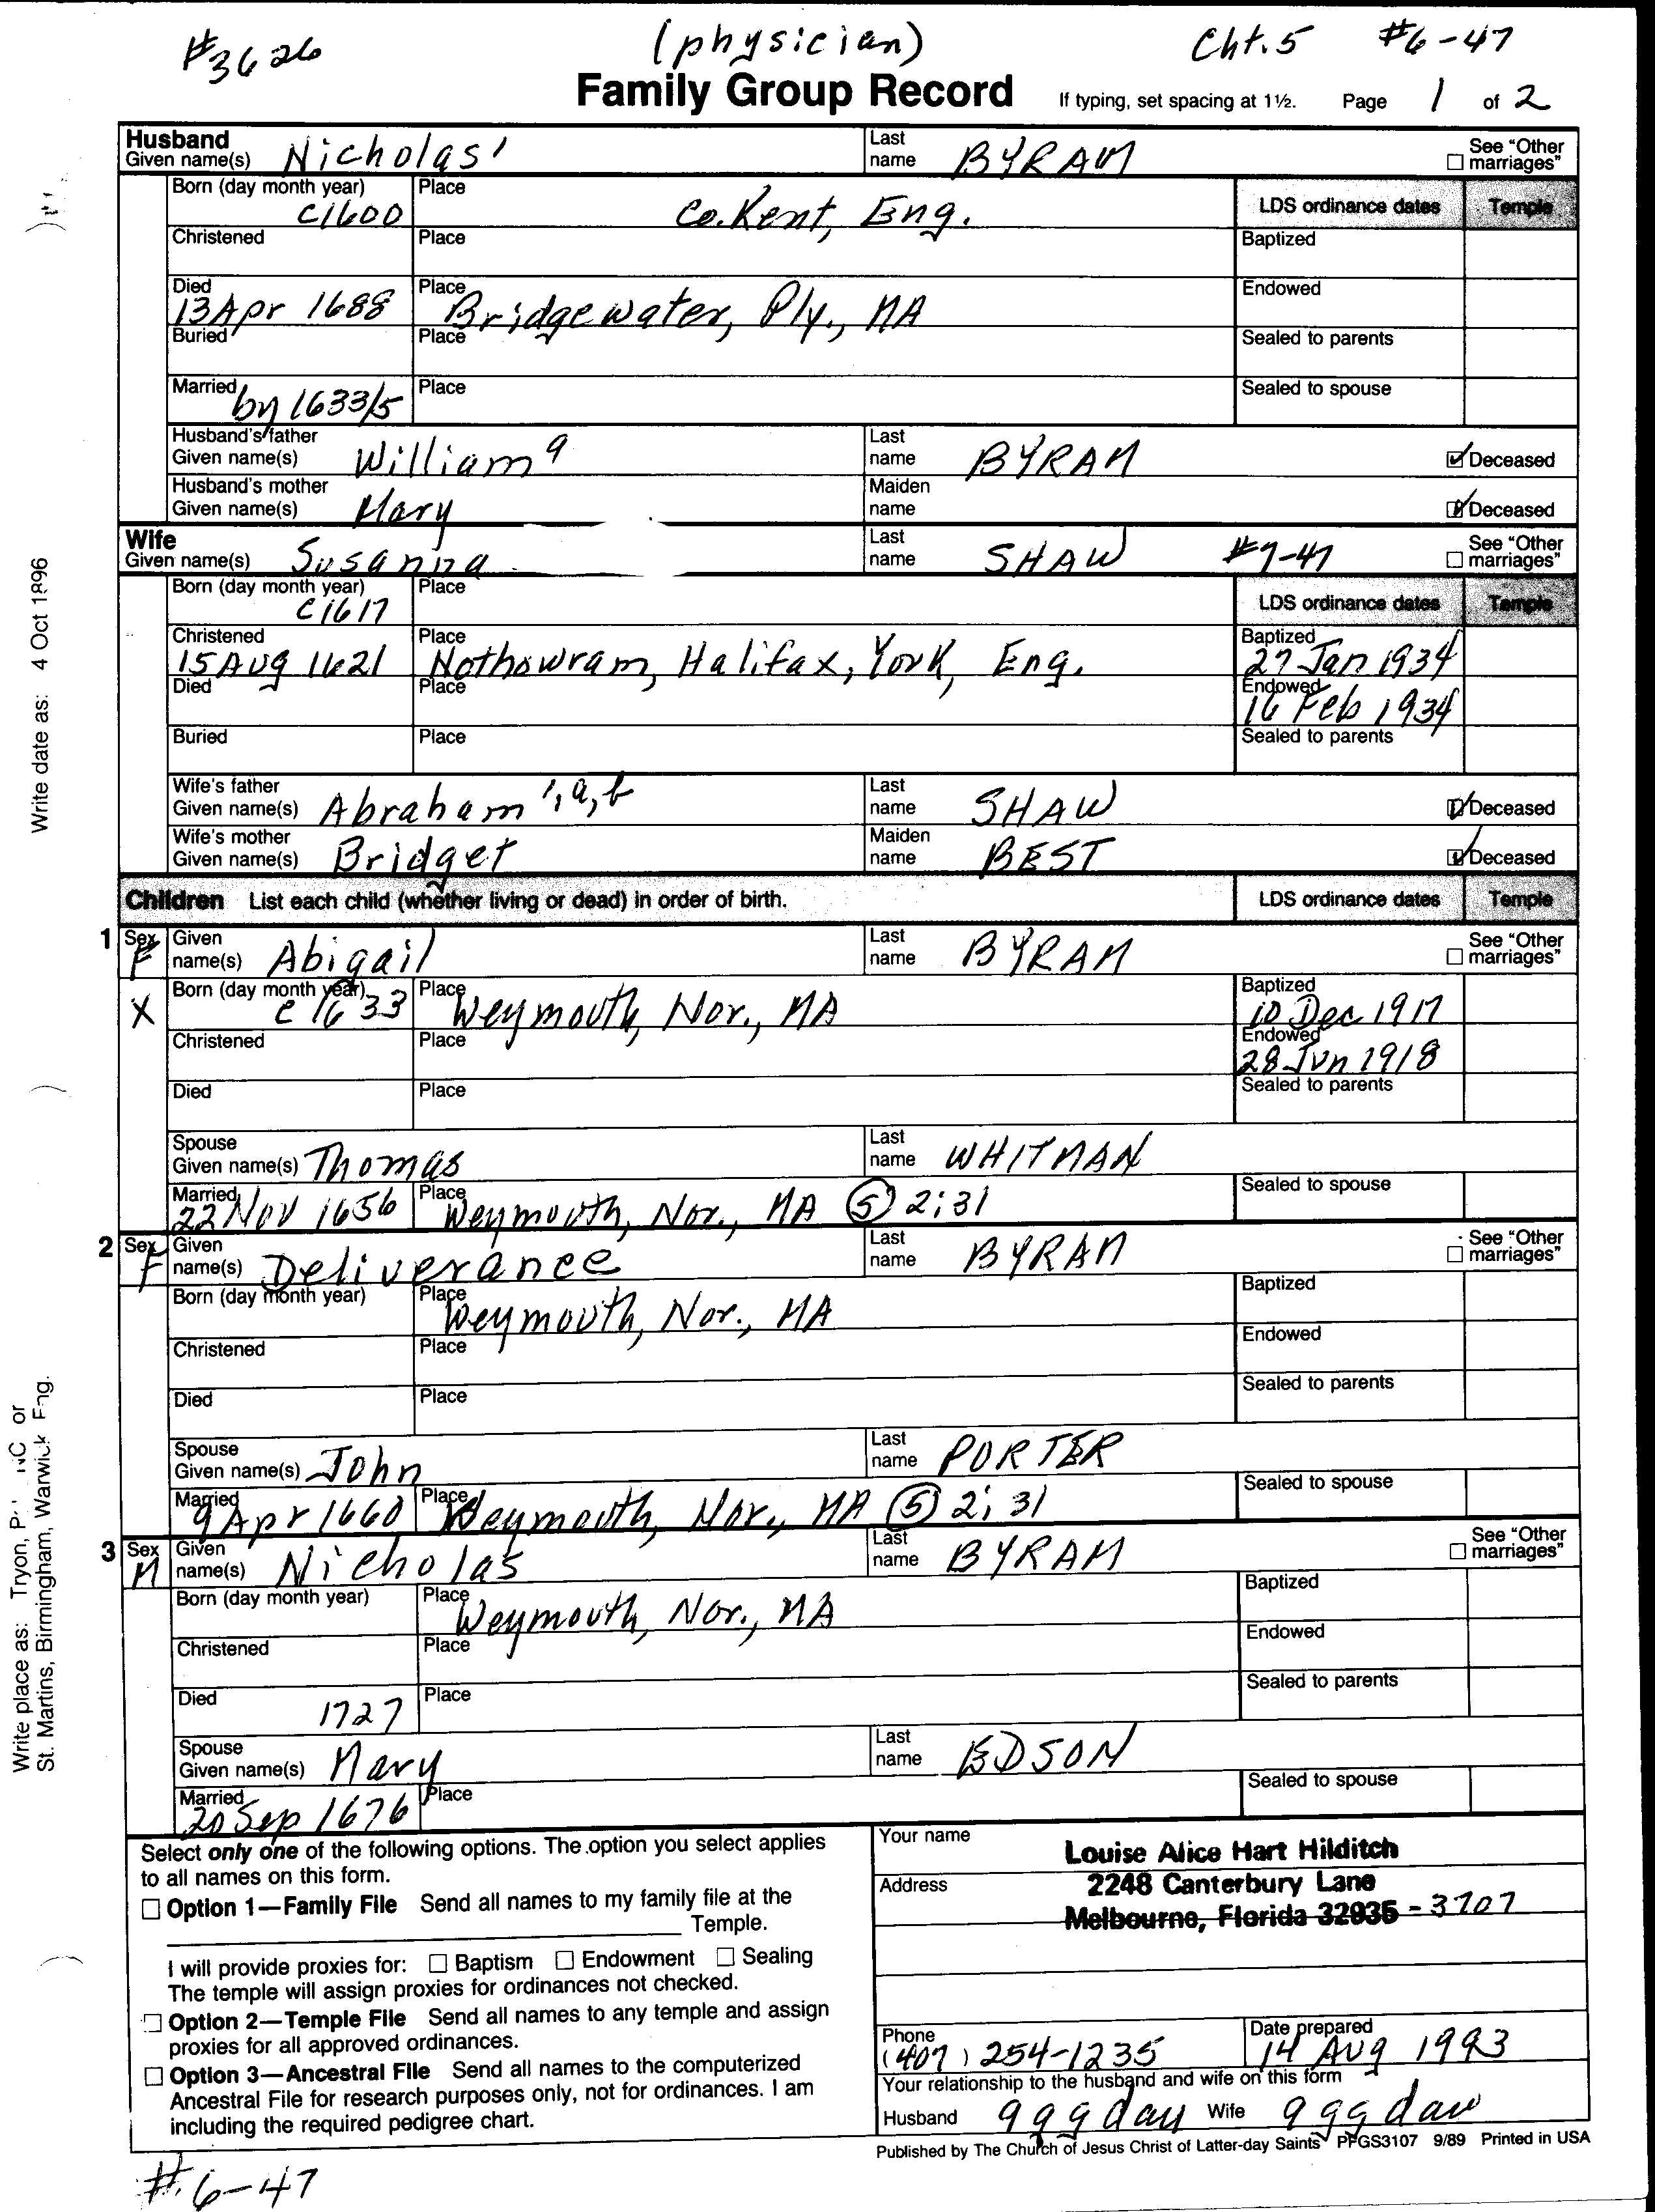 #3626 (physician) Cht. 5 #6-47
Family Group Record If typing, set spacing at 1½. Page 1 of 2
Husband
Given name(s) Nicholas¹ Last name BYRAM See "Other marriages"
Born (day month year) c1600 Place Co. Kent, Eng. LDS ordinance dates Temple
Christened Place Baptized
Died 13 Apr 1688 Place Bridgewater, Ply., MA Endowed
Buried Place Sealed to parents
Married by 1633/5 Place Sealed to spouse
Husband's father Given name(s) William Last name BYRAM Deceased
Husband's mother Given name(s) Mary Maiden name Deceased
Wife
Given name(s) Susanna Last name SHAW #7-47 See "Other marriages"
Born (day month year) c1617 Place LDS ordinance dates Temple
Christened 15 Aug 1621 Place Nothowram, Halifax, York, Eng. Baptized 27 Jan 1934
Died Place Endowed 16 Feb 1934
Buried Place Sealed to parents
Wife's father Given name(s) Abraham Last name SHAW Deceased
Wife's mother Given name(s) Bridget Maiden name BEST Deceased
Children List each child (whether living or dead) in order of birth. LDS ordinance dates Temple
1 Sex F Given name(s) Abigail Last name BYRAM See "Other marriages"
X Born (day month year) c 1633 Place Weymouth, Nor., MA Baptized 10 Dec 1917
Christened Place Endowed 28 Jun 1918
Died Place Sealed to parents
Spouse Given name(s) Thomas Last name WHITMAN
Married 22 Nov 1656 Place Weymouth, Nor., MA ⑤ 2:31 Sealed to spouse
2 Sex F Given name(s) Deliverance Last name BYRAM See "Other marriages"
Born (day month year) Place Weymouth, Nor., MA Baptized
Christened Place Endowed
Died Place Sealed to parents
Spouse Given name(s) John Last name PORTER
Married 9 Apr 1660 Place Weymouth, Nor., MA ⑤ 2:31 Sealed to spouse
3 Sex M Given name(s) Nicholas Last name BYRAM See "Other marriages"
Born (day month year) Place Weymouth, Nor., MA Baptized
Christened Place Endowed
Died 1727 Place Sealed to parents
Spouse Given name(s) Mary Last name EDSON
Married 20 Sep 1676 Place Sealed to spouse
Select only one of the following options. The option you select applies
to all names on this form.
Option 1—Family File Send all names to my family file at the
Temple.
I will provide proxies for: Baptism Endowment Sealing
The temple will assign proxies for ordinances not checked.
Option 2—Temple File Send all names to any temple and assign
proxies for all approved ordinances.
Option 3—Ancestral File Send all names to the computerized
Ancestral File for research purposes only, not for ordinances. I am
including the required pedigree chart.
Your name Louise Alice Hart Hilditch
Address 2248 Canterbury Lane
Melbourne, Florida 32935 - 3707
Phone (407) 254-1235 Date prepared 14 Aug 1993
Your relationship to the husband and wife on this form
Husband 9 gg dau Wife 9 gg dau
Published by The Church of Jesus Christ of Latter-day Saints PFGS3107 9/89 Printed in USA
#6-47
Write date as: 4 Oct 1896
Write place as: Tryon, NC or
St. Martins, Birmingham, Warwick Eng.